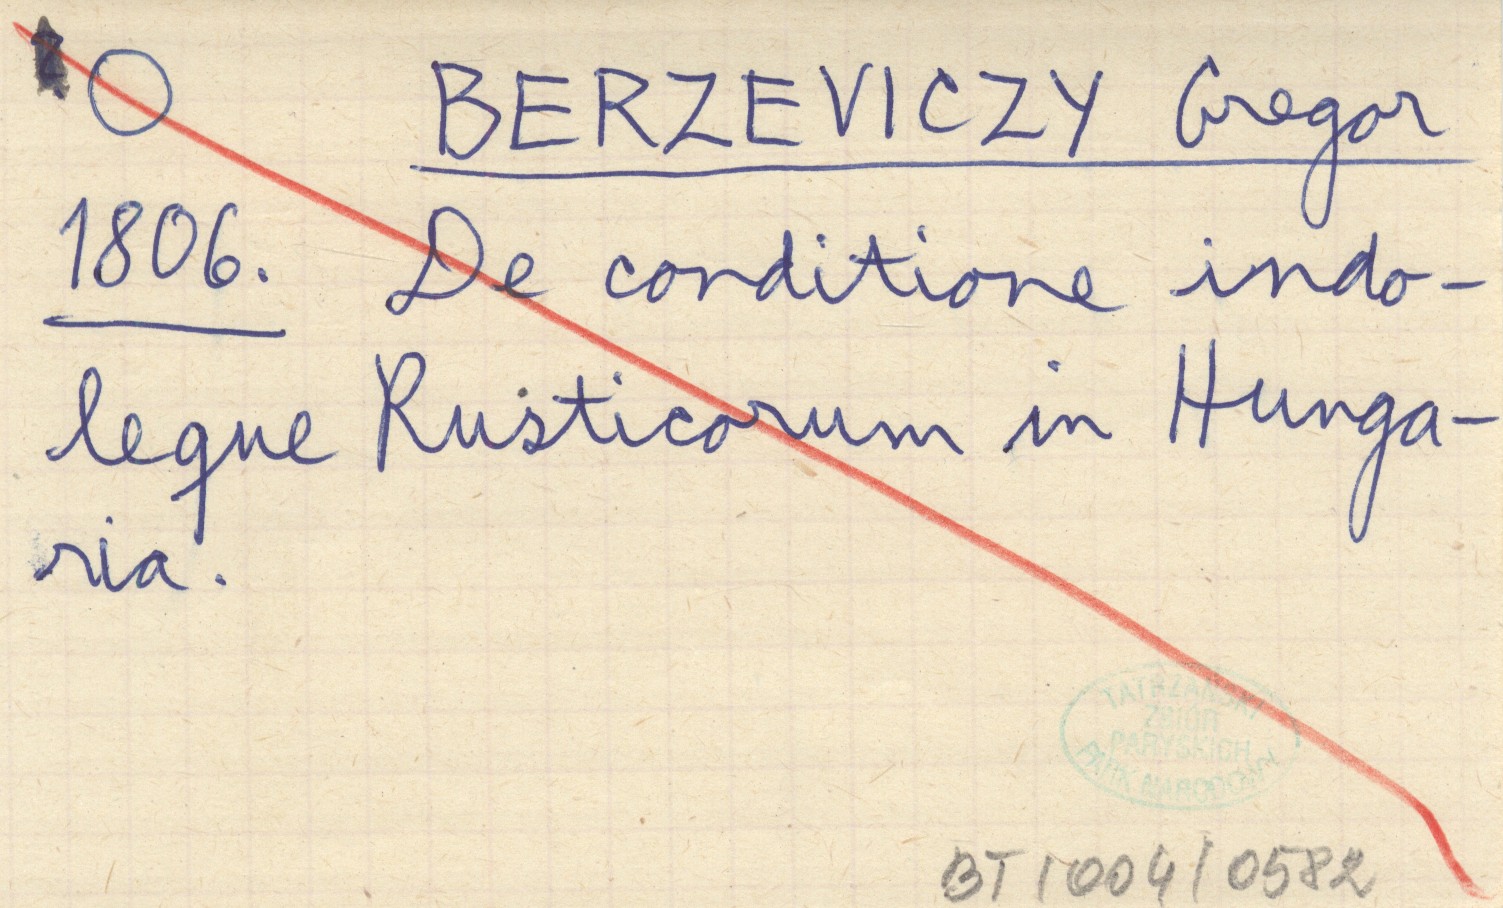 BERZEVICZY Gregor
1806. De conditione indo-
leque Rusticorum in Hunga-
ria.
TATRZAŃSKI
ZBIÓR
PARYSKICH
PARK NARODOWY
BT/004/0582